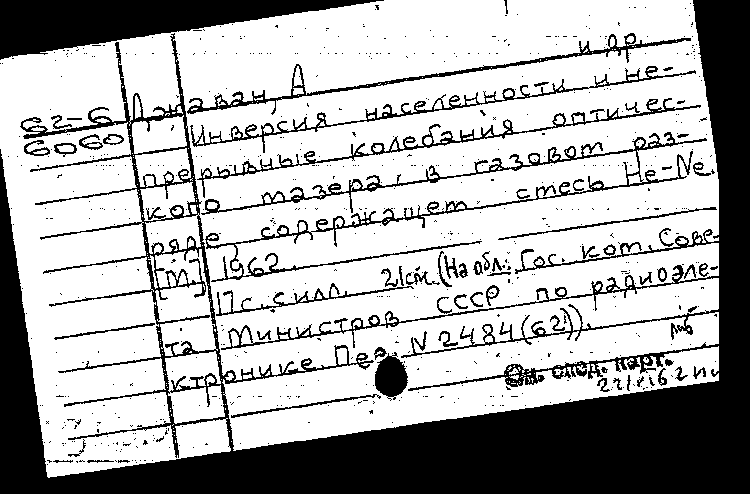 и др.
62-6 Джаван, А
6060 Инверсия населенности и не-
прерывные колебания оптичес-
кого мазера, в газовом раз-
ряде, содержащем смесь He-Ne.
[М.] 1962.
17 с. с илл. 21 см. (На обл.: Гос. ком. Сове-
та Министров СССР по радиоэле-
ктронике. Пер. N 2484(62)).
См. след. карт.